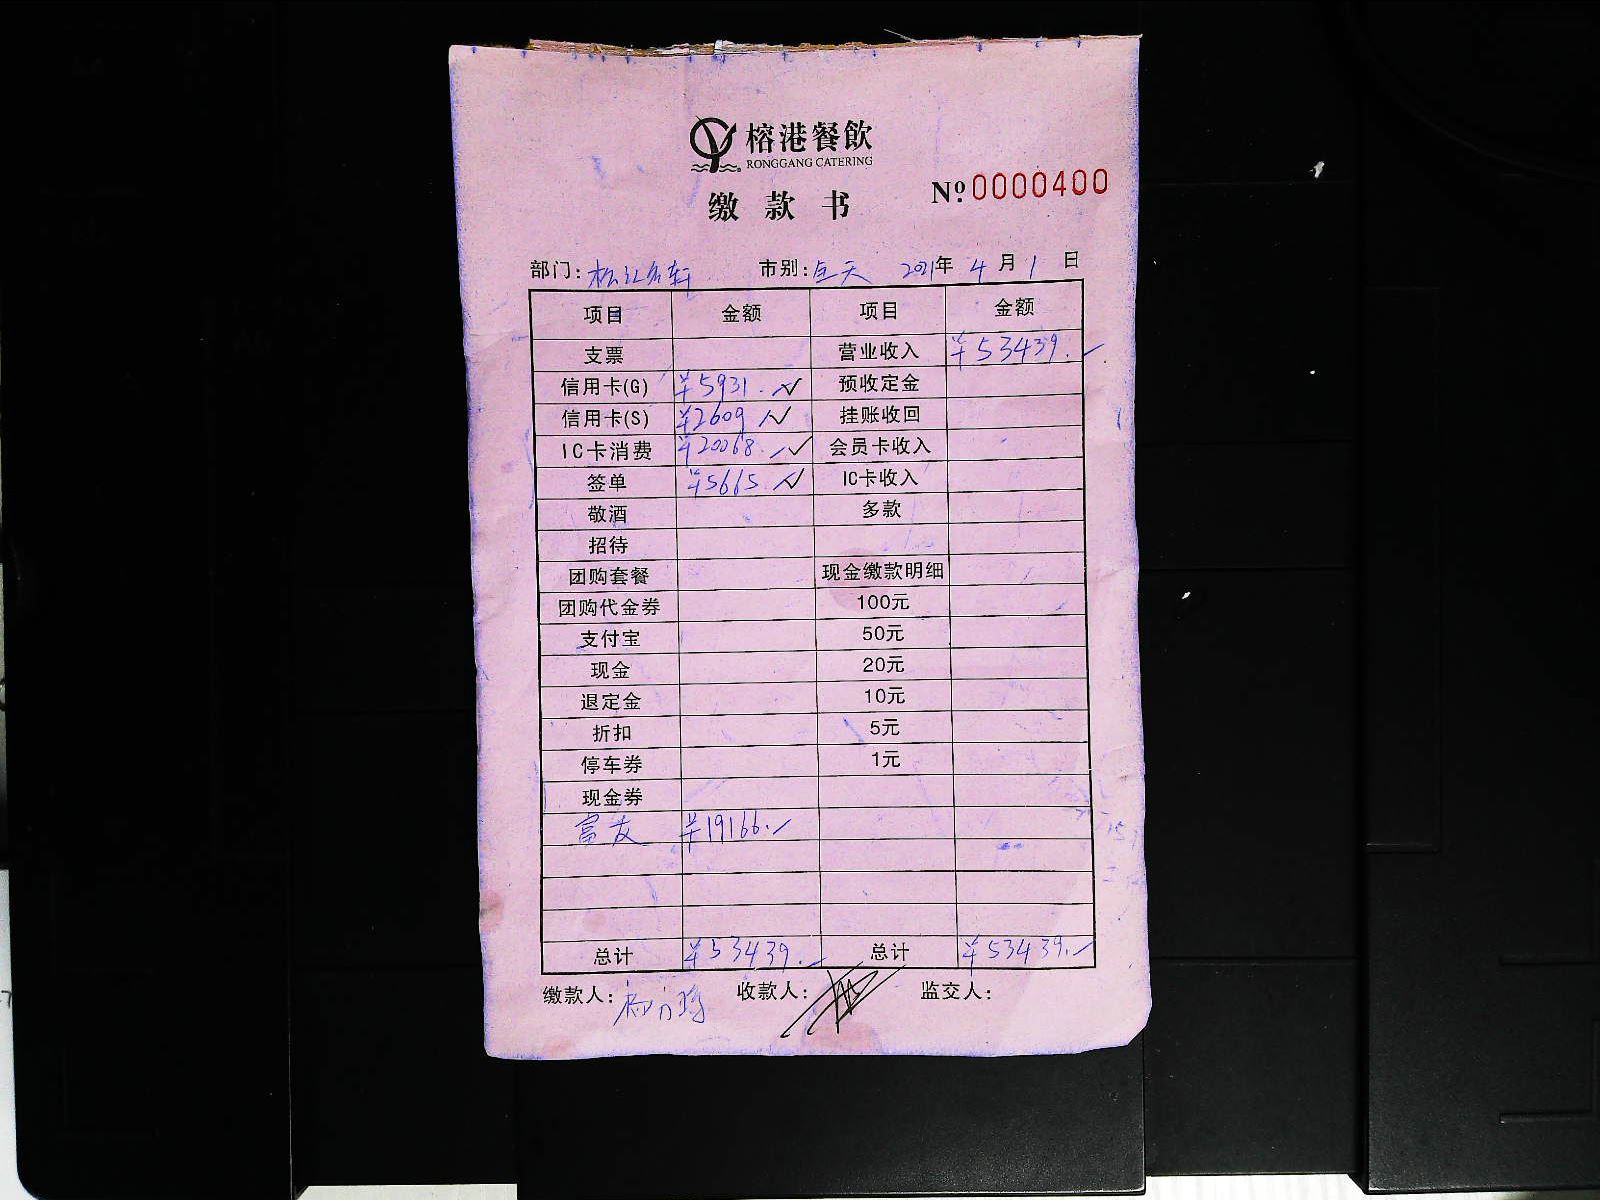 榕港餐飲
RONGGANG CATERING
缴款书 Nº.0000400
部门:松江名轩 市别:全天 2021年4月1日
项目 金额 项目 金额
支票 营业收入 ¥53439.
信用卡(G) ¥5931. 预收定金
信用卡(S) ¥2609 挂账收回
IC卡消费 ¥20068. 会员卡收入
签单 ¥5665. IC卡收入
敬酒 多款
招待
团购套餐 现金缴款明细
团购代金券 100元
支付宝 50元
现金 20元
退定金 10元
折扣 5元
停车券 1元
现金券
富友 ¥19166.
总计 ¥53439. 总计 ¥53439.
缴款人: 收款人: 监交人: